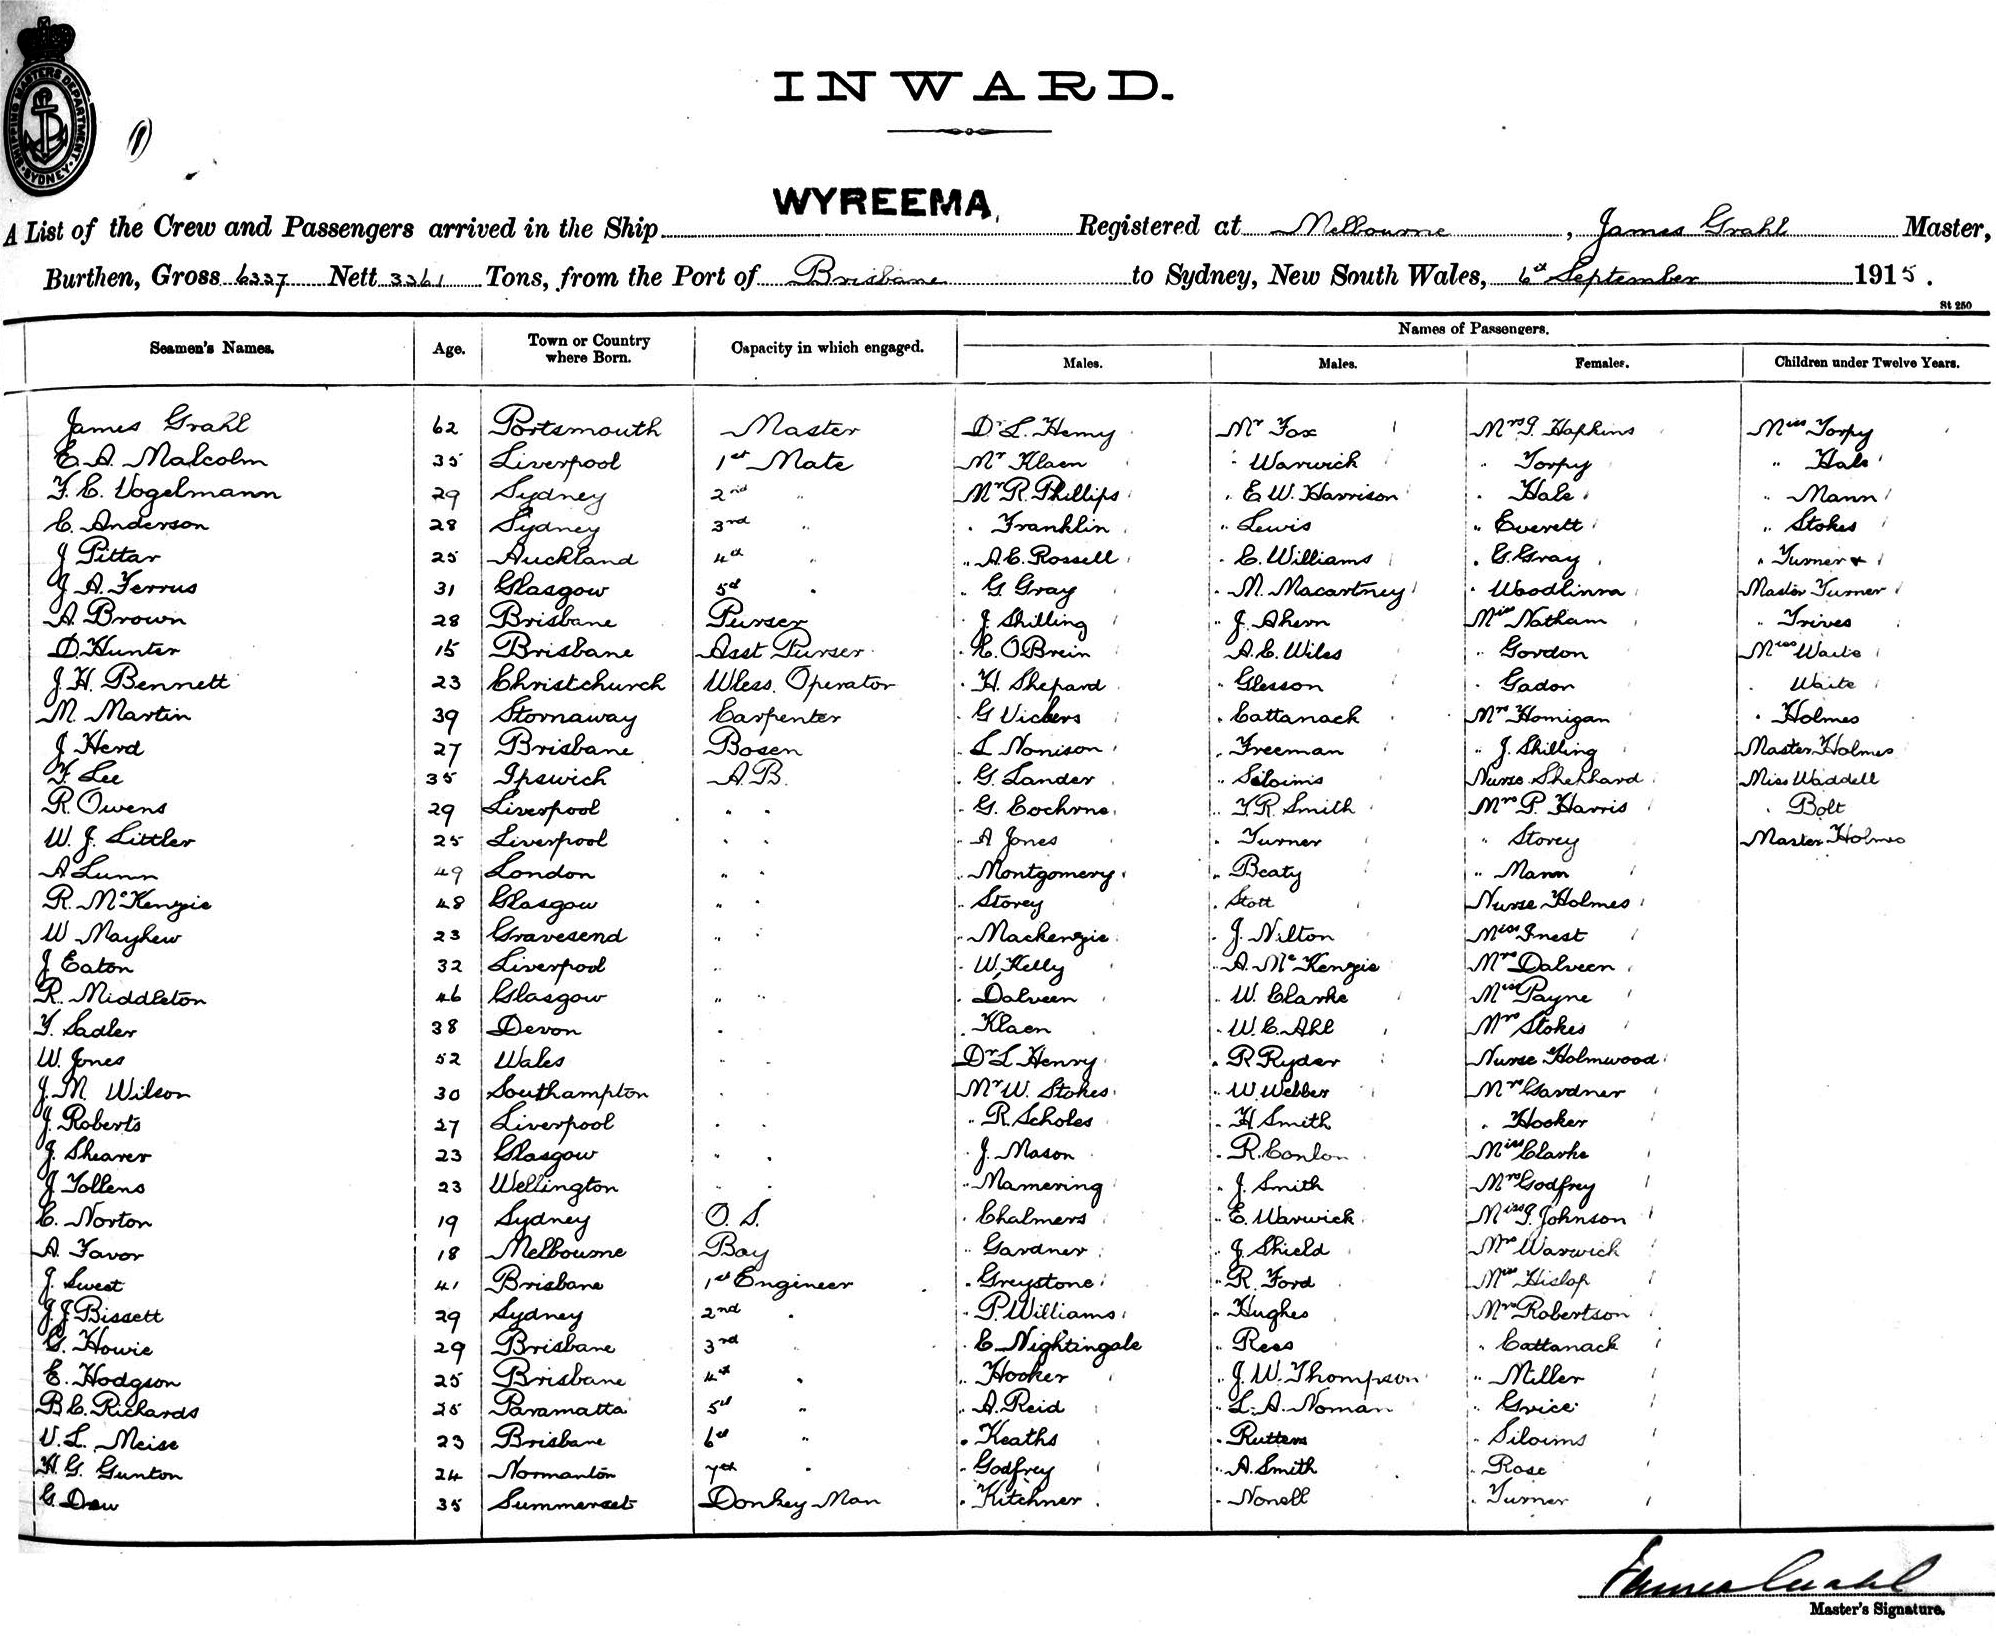 SHIPPING MASTERS DEPARTMENT
SYDNEY
INWARD.
WYREEMA,
A List of the Crew and Passengers arrived in the Ship Registered at Melbourne, James Grahl Master,
Burthen, Gross 6337 Nett 3361 Tons, from the Port of Brisbane to Sydney, New South Wales, 6th September 1915.
St 250
Seamen's Names. Age. Town or Country where Born. Capacity in which engaged. Names of Passengers.
Males. Males. Females. Children under Twelve Years.
James Grahl 62 Portsmouth Master Dr L. Hemy Mr Fox Mrs J. Hopkins Miss Torpy
E. A. Malcolm 35 Liverpool 1st Mate Mr Klaen " Warwick " Torpy " Hale
F. C. Vogelmann 29 Sydney 2nd " Mr R. Phillips " E W. Harrison " Hale " Mann
C. Anderson 28 Sydney 3rd " " Franklin " Lewis " Everett " Stokes
J Pittar 25 Auckland 4th " " A. C. Rossell " C. Williams " G. Gray " Turner &
J. A. Ferrus 31 Glasgow 5th " " G Gray " M. Macartney " Master Turner
A. Brown 28 Brisbane Purser " J. Shilling " J. Ahern Miss Natham " Trives
D. Hunter 15 Brisbane Asst Purser " O'Brein A. C. Wiles " Gordon Miss Waite
J. H. Bennett 23 Christchurch Wless. Operator " H. Shepard " Glesson " Gadon " Waite
M. Martin 39 Stornaway Carpenter " G Vickers " Cattanack Mrs Homigan " Holmes
J. Herd 27 Brisbane Bosen " L Nonison " Freeman " J. Shilling Master Holmes
F. Lee 35 Ipswich A.B. " G. Lander " Siloims Nurse Shephard Miss Waddell
R. Owens 29 Liverpool " " " G. Cochrne " F. R. Smith Mrs P. Harris " Bolt
W. J. Littler 25 Liverpool " " " A Jones " Turner " Storey Master Holmes
A Lunn 49 London " " " Montgomery " Beaty " Mann
R. McKenzie 48 Glasgow " " " Storey " Stott Nurse Holmes
W Mayhew 23 Gravesend " " " Mackenzie " J. Nilton Miss Inest
J Eaton 32 Liverpool " " W. Kelly " A. McKenzie Mrs Dalveen
R. Middleton 46 Glasgow " " " Dalveen " W. Clarke Miss Payne
F. Sadler 38 Devon " " Klaen " W. C. Ahl Mrs Stokes
W. Jones 52 Wales " " Dr L Henry " R Ryder Nurse Holmwood
J. M. Wilson 30 Southampton " " Mr W. Stokes " W Webber Mrs Gardner
J. Roberts 27 Liverpool " " " R. Scholes " H Smith " Hooker
J. Shearer 23 Glasgow " " " J. Mason " R. Conlon Miss Clarke
J Tollens 23 Wellington " " " Mamering " J. Smith Mrs Godfrey
C. Norton 19 Sydney O. S. " Chalmers " E. Warwick Miss J. Johnson
A. Favor 18 Melbourne Boy " Gardner " J. Shield Mrs Warwick
J. Sweet 41 Brisbane 1st Engineer " Greystone " R. Ford Miss Hislop
J. J Bissett 29 Sydney 2nd " " P. Williams " Hughes Mrs Robertson
G. Howie 29 Brisbane 3rd " " C. Nightingale " Rees " Cattanack
E. Hodgson 25 Brisbane 4th " " Hooker " J. W. Thompson " Miller
B C. Richards 25 Paramatta 5th " " A. Reid " L. A. Noman " Grice
V. L. Meise 23 Brisbane 6th " " Keaths " Rutters " Siloims
H. G. Gunton 24 Normanton 7th " " Godfrey " A. Smith " Rose
G. Dew 35 Summerset Donkey Man " Kitchner " Nonell " Turner
James Grahl
Master's Signature.